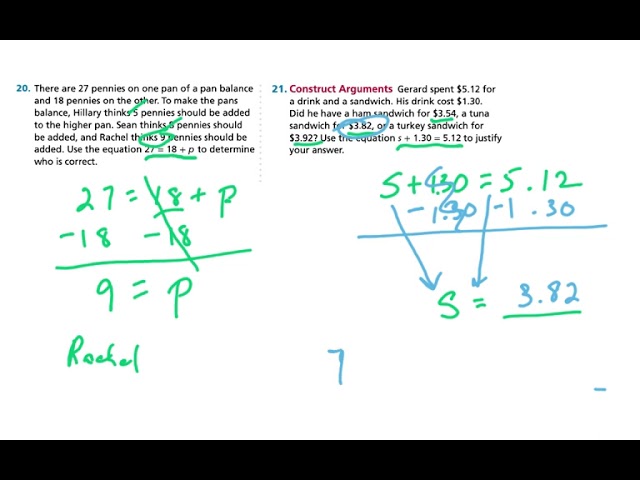 20. There are 27 pennies on one pan of a pan balance
and 18 pennies on the other. To make the pans
balance, Hillary thinks 5 pennies should be added
to the higher pan. Sean thinks 8 pennies should
be added, and Rachel thinks 9 pennies should be
added. Use the equation 27 = 18 + p to determine
who is correct.
27 = 18 + p
-18 -18
9 = p
Rachel
21. Construct Arguments Gerard spent $5.12 for
a drink and a sandwich. His drink cost $1.30.
Did he have a ham sandwich for $3.54, a tuna
sandwich for $3.82, or a turkey sandwich for
$3.92? Use the equation s + 1.30 = 5.12 to justify
your answer.
S + 1.30 = 5.12
- 1.30 -1.30
S = 3.82